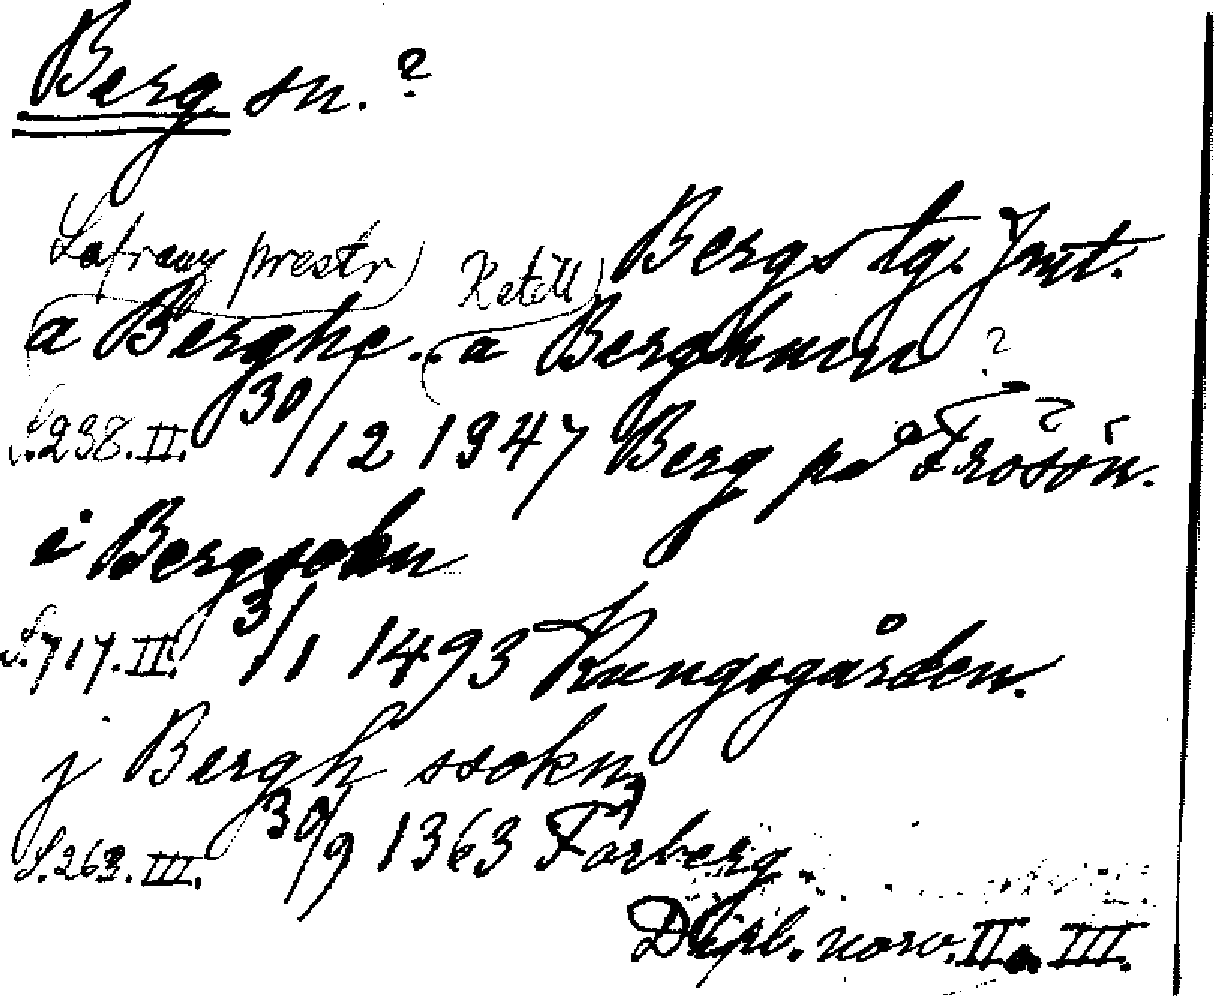 Berg sn. ?
Bergs tg. Jmt.
Lafrenz prestr) Ketill)
a Berghe. . a Berghmm ?
S. 238. II. 30/12 1347 Berg på Frösön. ?
i Bergsokn
S. 717. II. 3/1 1493 Kungsgården.
j Bergh ssokn
S. 263. III. 30/9 1363 Farberg.
Dipl. norv. II o. III.